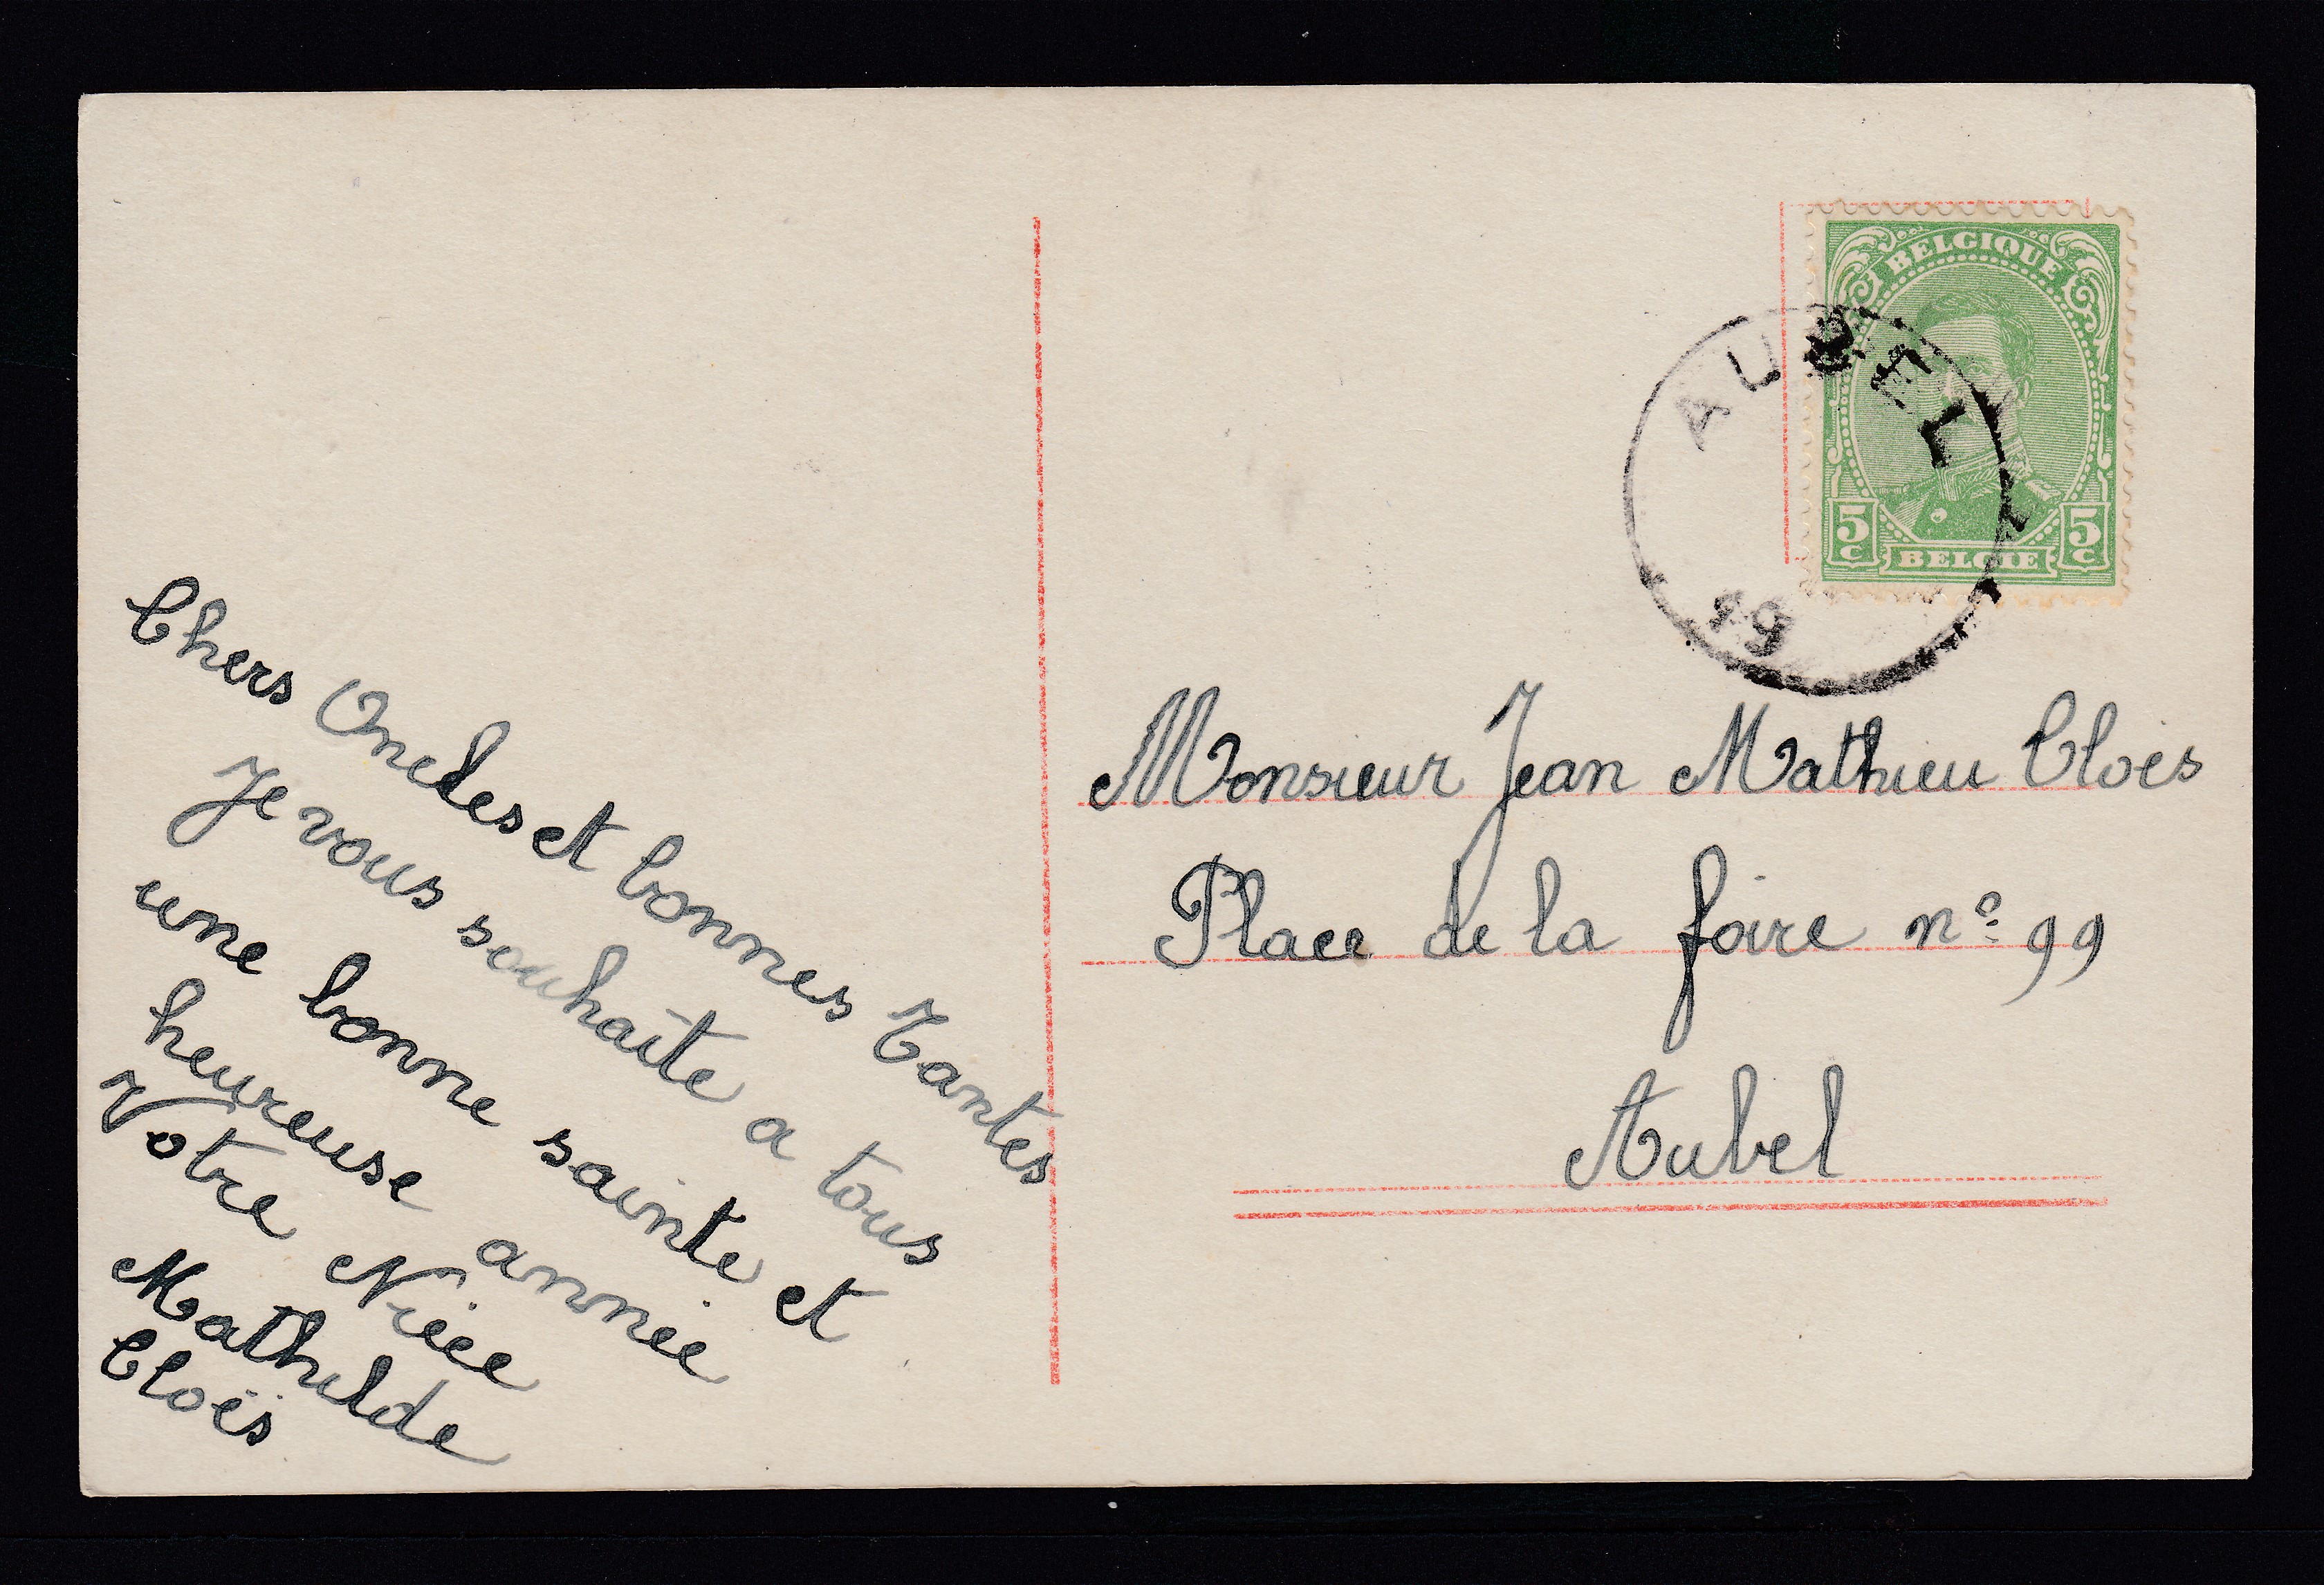 Chers Oncles et bonnes Tantes
Je vous souhaite a tous
une bonne sainte et
heureuse année
Votre Nièce
Mathilde
Cloës
BELGIQUE
5c
BELGIË
5c
AUBEL
19
Monsieur Jean Mathieu Cloës
Place de la foire nº 99
Aubel